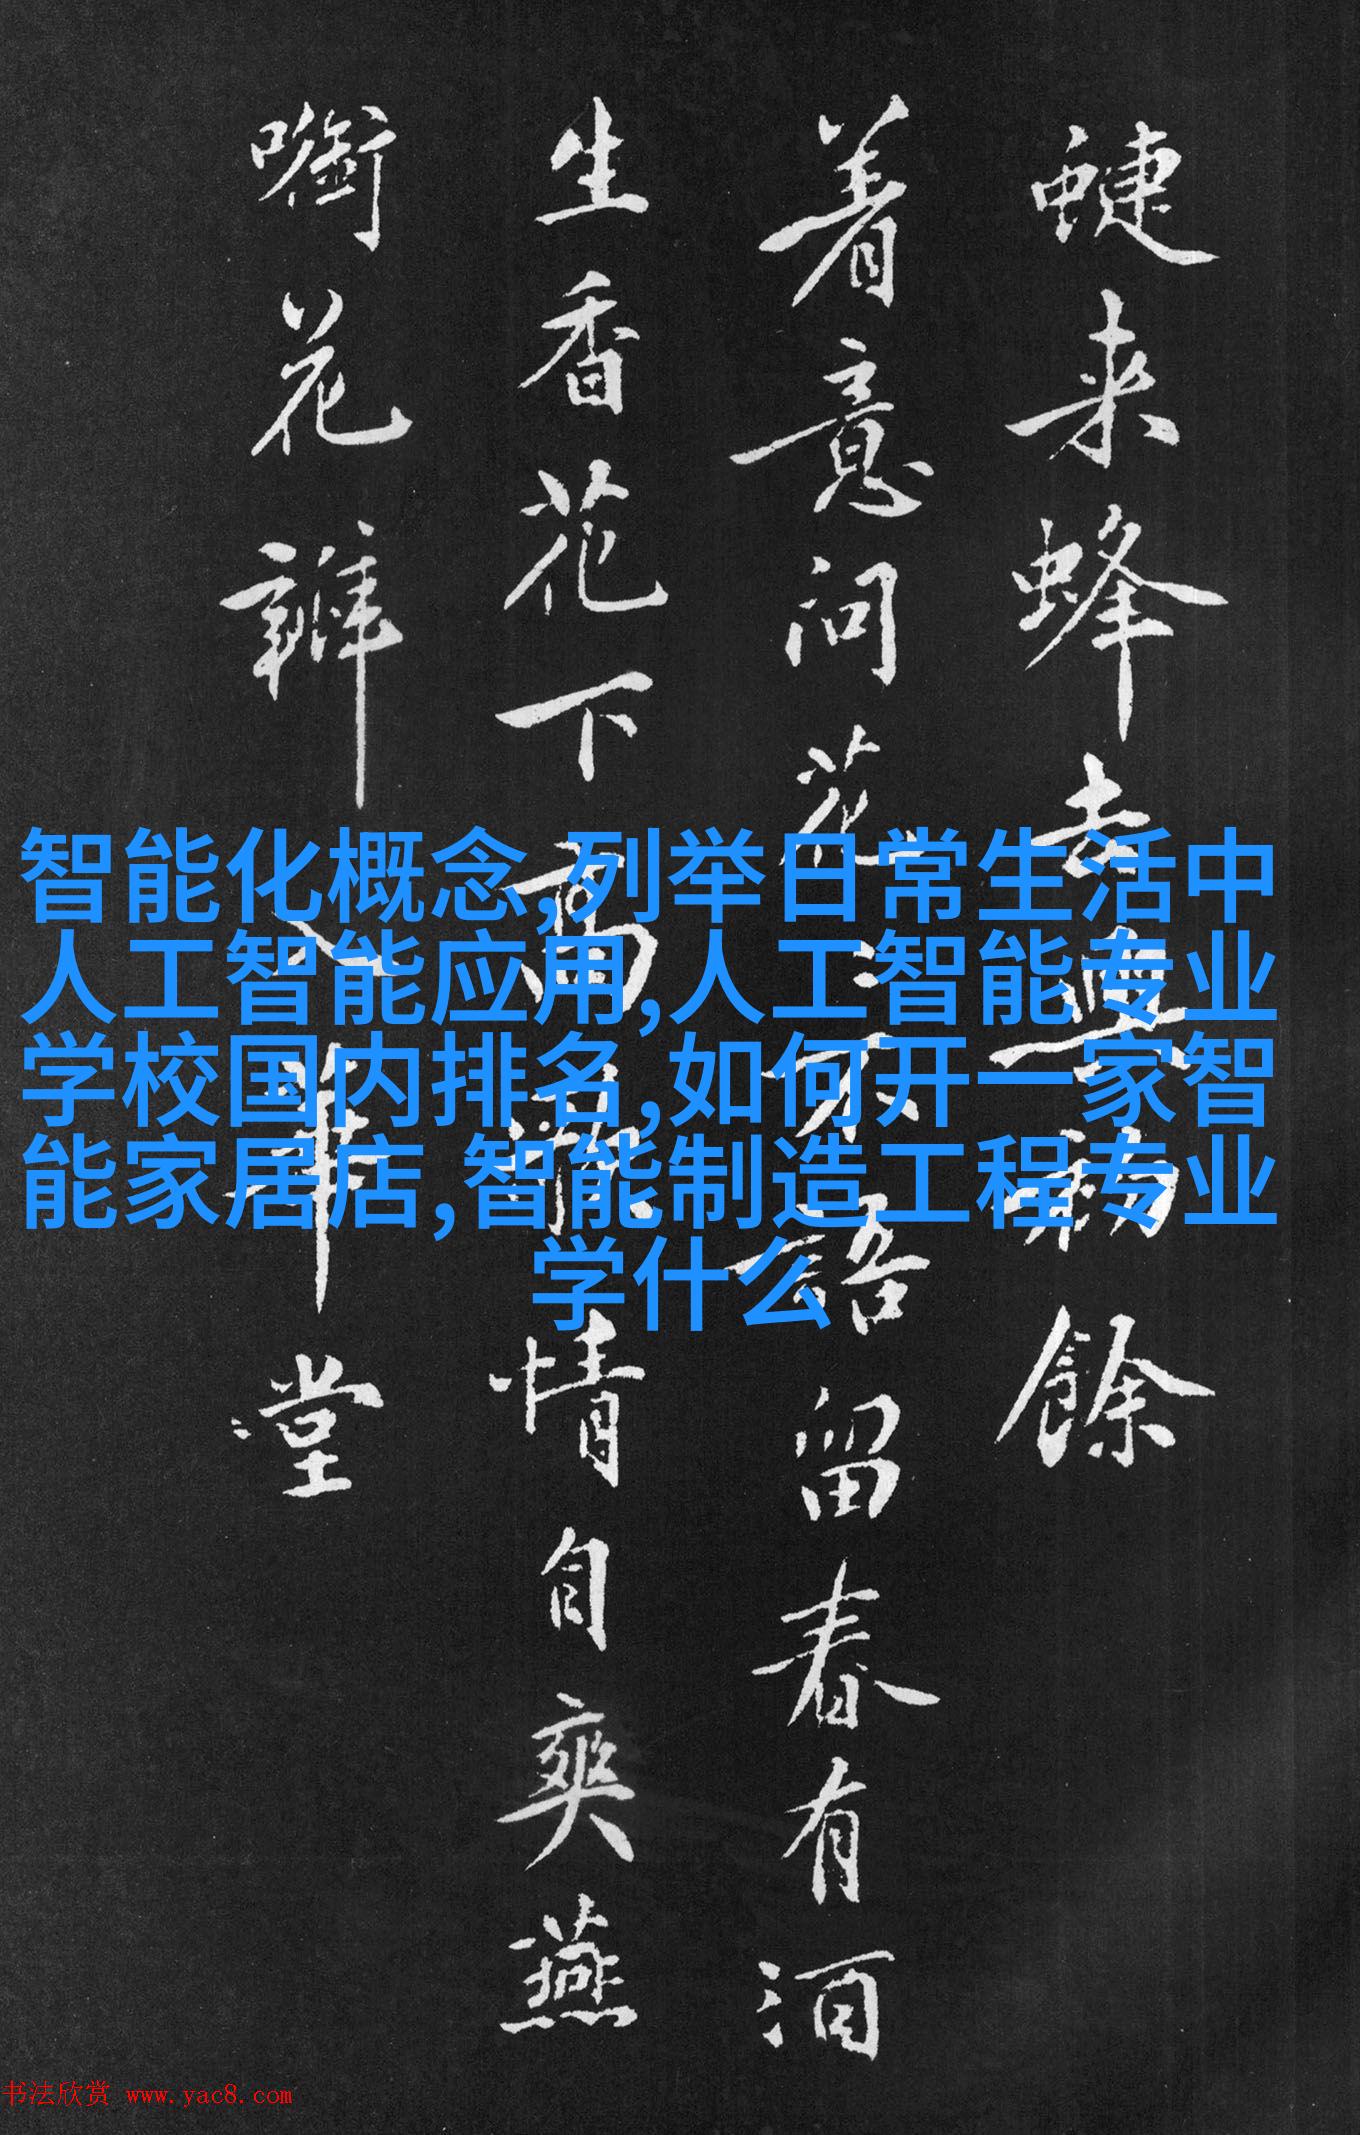 蜨来蜂去餘
着意问花〻不語留春有酒
生香花下高情自爽燕
嘲花瓣入華堂
智能化概念,列举日常生活中
人工智能应用,人工智能专业
学校国内排名,如何开一家智
能家居店,智能制造工程专业
学什么
书法欣赏 www.yac8.com